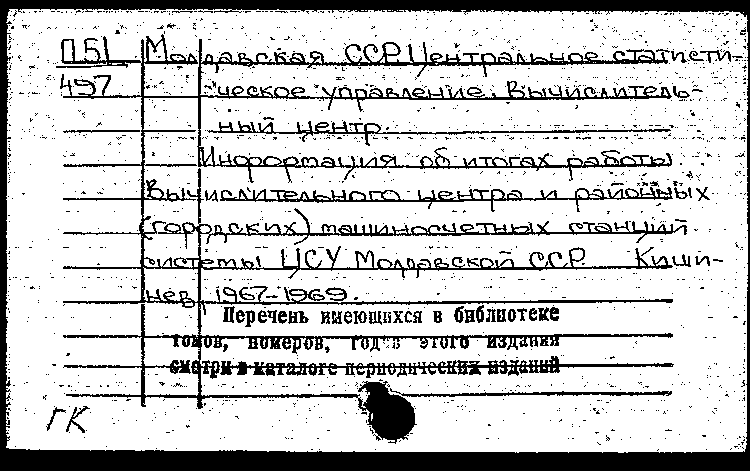 П51 Молдавская ССР. Центральное статисти-
497 ческое управление. Вычислитель-
ный центр.
Информация об итогах работы
Вычислительного центра и районных
(городских) машиносчетных станций
системы ЦСУ Молдавской ССР. Киши-
нев, 1967-1969.
Перечень имеющихся в библиотеке
томов, номеров, годов этого издания
смотри в каталоге периодических изданий
ГК